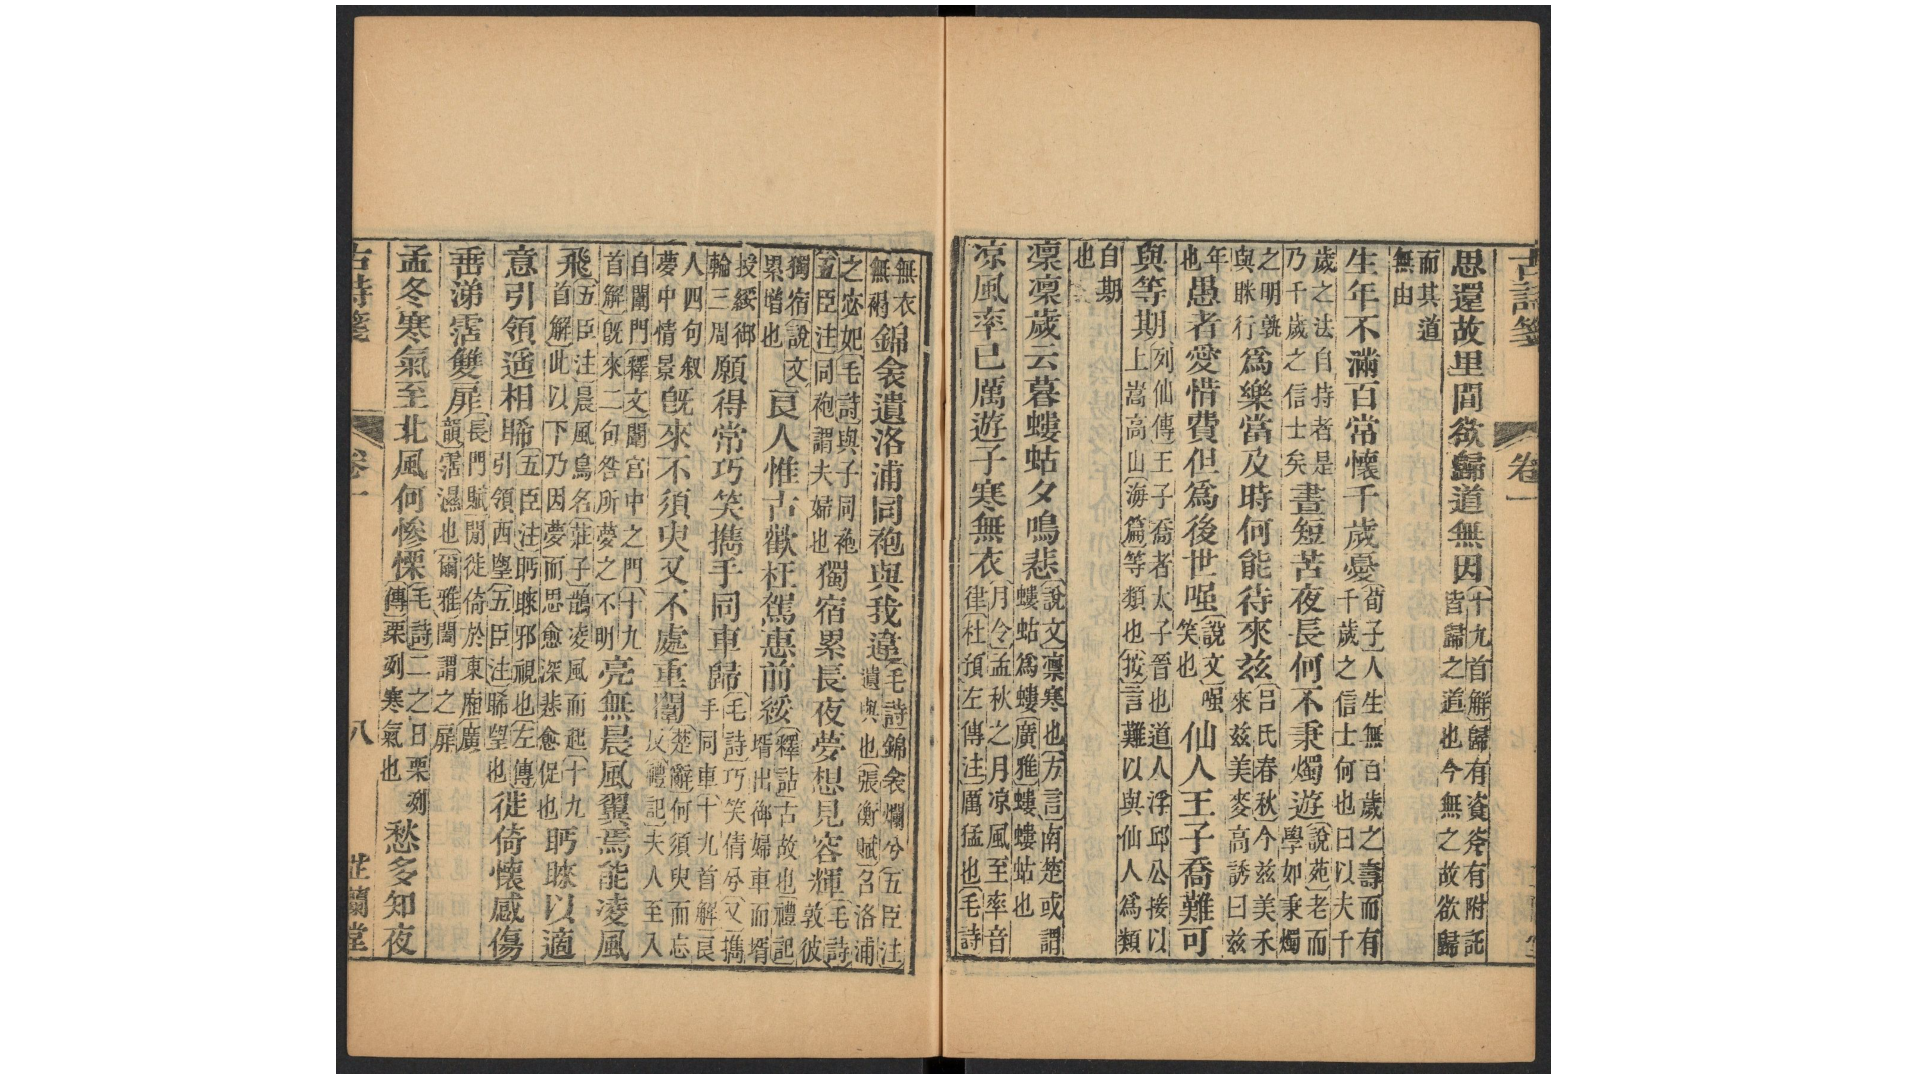 古詩箋 卷一
思還故里閭欲歸道無因〔十九首解〕歸有資夯有附託
皆歸之道也今無之故欲歸
而其道
無由
生年不滿百常懷千歲憂〔荀子〕人生無百歲之壽而有
千歲之信士何也曰以夫千
歲之法自持者是
乃千歲之信士矣
晝短苦夜長何不秉燭遊〔說苑〕老而
學如秉燭
之明孰
與眜行
為樂當及時何能待來茲〔呂氏春秋〕今茲美禾
來茲美麥高誘曰茲
年
也
愚者愛惜費但為後世嗤〔說文〕嗤
笑也
仙人王子喬難可
與等期〔列仙傳〕王子喬者太子晉也道人浮邱公接以
上嵩高山〔海篇〕等類也〔按〕言難以與仙人為類
自期
也
凜凜歲云暮螻蛄夕鳴悲〔說文〕凜寒也〔方言〕南楚或謂
螻蛄為螻〔廣雅〕螻螻蛄也
凉風率已厲遊子寒無衣〔月令〕孟秋之月凉風至率音
律〔杜預左傳注〕厲猛也〔毛詩〕
無衣
無褐
錦衾遺洛浦同袍與我違〔毛詩〕錦衾爛兮〔五臣注〕
遺與也〔張衡賦〕召洛浦
之宓妃〔毛詩〕與子同袍
〔五臣注〕同袍謂夫婦也
獨宿累長夜夢想見容輝〔毛詩〕
敦彼
獨宿〔說文〕
累增也
良人惟古歡枉駕惠前綏〔釋詁〕古故也〔禮記〕
壻出御婦車而壻
授綏御
輪三周
願得常巧笑擕手同車歸〔毛詩〕巧笑倩兮〔又〕擕
手同車〔十九首解〕良
人四句叙
夢中情景
旣來不須臾又不處重闈〔楚辭〕何須臾而忘
反〔禮記〕夫人至入
自闈門〔釋文〕闈宮中之門〔十九
首解〕旣來二句咎所夢之不明
亮無晨風翼焉能凌風
飛〔五臣注〕晨風鳥名〔莊子〕鵲凌風而起〔十九
首解〕此以下乃因夢而思愈深悲愈促也
眄睞以適
意引領遥相睎〔五臣注〕眄睞邪視也〔左傳〕
引領西望〔五臣注〕睎望也
徙倚懷感傷
垂涕霑雙扉〔長門賦〕閒徙倚於東廂〔廣
韻〕霑濕也〔爾雅〕闔謂之扉
孟冬寒氣至北風何慘慄〔毛詩〕二之日栗冽
〔傳〕栗冽寒氣也
愁多知夜
古詩箋 卷一 八 芷蘭堂